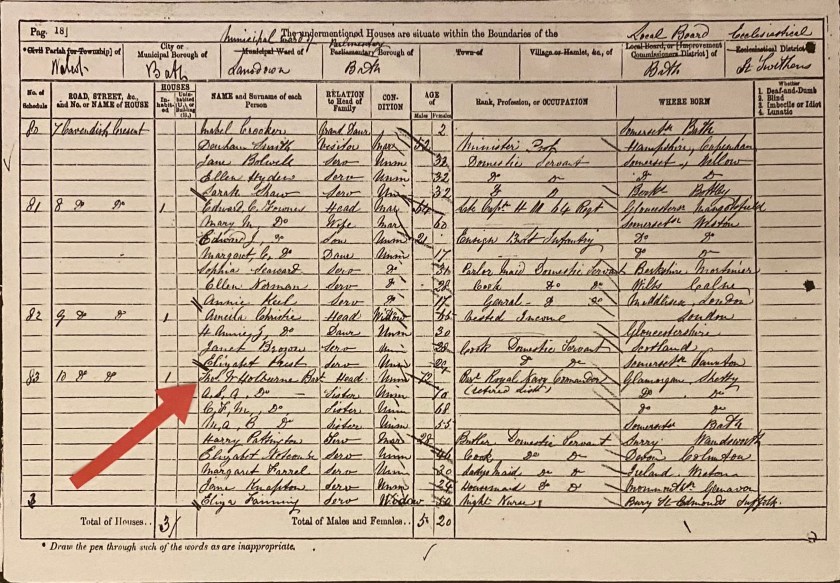 Pag. 18] The undermentioned Houses are situate within the Boundaries of the
*Civil Parish [or Township] of
Walcot
City or Municipal Borough of
Bath
Municipal Ward of
Municipal Ward of
Lansdown
Parliamentary Borough of
Bath
Town of
Village or Hamlet, &c., of
Local Board
Local Board, or [Improvement Commissioners District] of
Bath
Ecclesiastical
Ecclesiastical District of
St Swithens
No. of Schedule
ROAD, STREET, &c., and No. or NAME of HOUSE
HOUSES
Inhabited
Uninhabited (U.), or Building (B.)
NAME and Surname of each Person
RELATION to Head of Family
CONDITION
AGE of
Males
Females
Rank, Profession, or OCCUPATION
WHERE BORN
Whether
1. Deaf-and-Dumb
2. Blind
3. Imbecile or Idiot
4. Lunatic
80 7 Cavendish Cresent Mabel Crooker Grand Daur 2 Somerset Bath
Smith Visitor Mar 52 Minister Hampshire,
Jane Bolwell Serv Unm 32 Domestic Servant Somerset,
Ellen Hyden Serv Unm 32 Do Do Do Do
Sarah Shaw Serv Unm 32 Do Do
81 8 Do Do 1 Edward C. Head Mar 64 Late Capt H M 64 Regt Gloucester Mangotsfield
Mary M. Do Wife Mar 60 Somerset Weston
Edward J. Do Son Unm 21 Ensign Infantry Do Do
Margaret C. Do Daur Unm 17 Do Do
Sophia Seaward Serv Do Parlor Maid Domestic Servant Berkshire Mortimer
Ellen Norman Serv Do 28 Cook Do Do Wilts Calne
Annie Keel Serv Do 17 Do Do Middlesex, London
82 9 Do Do 1 Amelia Christie Head Widow Vested Income London
H Annie Do Daur Unm 30 Gloucestershire
Janet Brown Serv Unm 28 Cook Domestic Servant Scotland
Elizabet Serv Unm Do Do Somerset Taunton
83 10 Do Do 1 Thos. W Holburne Bart Head Unm Bart Royal Navy Commander Glamorgan,
(retired List)
A. Do Sister Unm Do Do
C. F. M., Do Sister Unm 68 Do Do
M. A. B. Do Sister Unm 55 Somerset Bath
Harry Serv Mar 28 Butler Domestic Servant Surry Wandsworth
Elizabet Serv Unm 46 Cook Do Do Devon
Margaret Farrel Serv Unm 30 Do Do Ireland,
Jane Knapton Serv Unm 24 Housemaid Do Do
3 Eliza Serv Widow Night Nurse Bury St Edmonds Suffolk.
Total of Houses.. 3 Total of Males and Females.. 5 20
* Draw the pen through such of the words as are inappropriate.